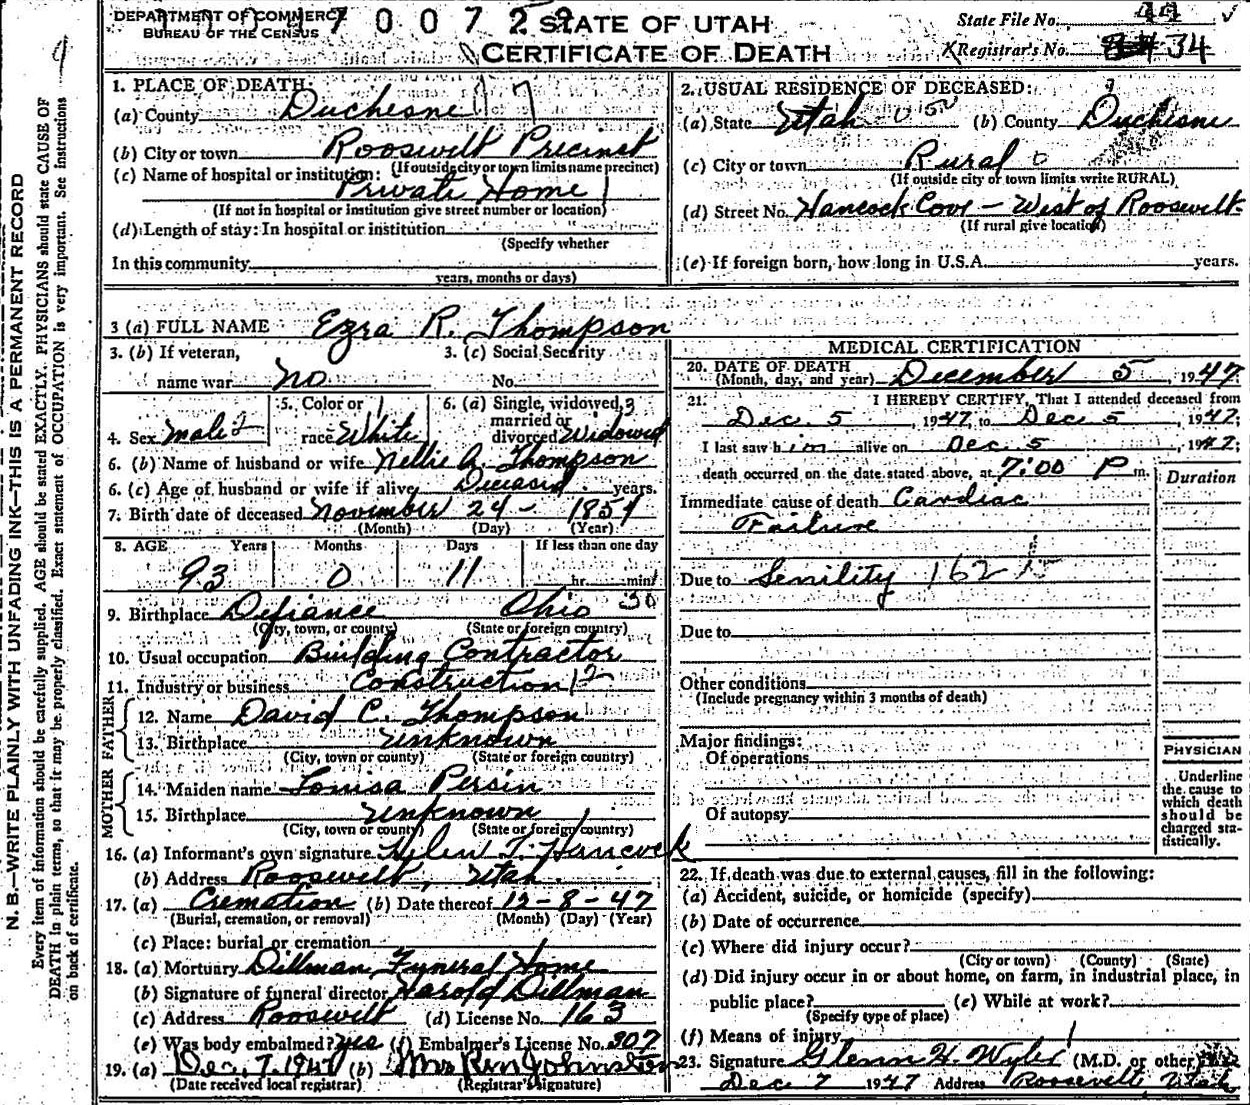 DEPARTMENT OF COMMERCE
BUREAU OF THE CENSUS
STATE OF UTAH
CERTIFICATE OF DEATH
State File No. 44
Registrar's No. 34
N. B.—WRITE PLAINLY WITH UNFADING INK—THIS IS A PERMANENT RECORD
Every item of information should be carefully supplied. AGE should be stated EXACTLY. PHYSICIANS should state CAUSE OF
DEATH in plain terms, so that it may be properly classified. Exact statement of OCCUPATION is very important. See instructions
on back of certificate.
1. PLACE OF DEATH:
(a) County Duchesne 17
(b) City or town Roosevelt Precinct
(If outside city or town limits name precinct)
(c) Name of hospital or institution:
Private Home
(If not in hospital or institution give street number or location)
(d) Length of stay: In hospital or institution
(Specify whether
In this community
years, months or days)
2. USUAL RESIDENCE OF DECEASED:
(a) State Utah (b) County Duchesne
(c) City or town Rural
(If outside city or town limits write RURAL)
(d) Street No. Hancock Cove - West of Roosevelt
(If rural give location)
(e) If foreign born, how long in U.S.A. years.
3 (a) FULL NAME Ezra R. Thompson
3. (b) If veteran,
name war no
3. (c) Social Security
No.
4. Sex male 2
5. Color or
race White
6. (a) Single, widowed, 3
married or
divorced Widowed
6. (b) Name of husband or wife Nellie A. Thompson
6. (c) Age of husband or wife if alive Deceased years.
7. Birth date of deceased November 24 - 1854
(Month) (Day) (Year)
8. AGE Years Months Days If less than one day
93 0 11 hr. min.
9. Birthplace Defiance Ohio 30
(City, town, or county) (State or foreign country)
10. Usual occupation Building Contractor
11. Industry or business Construction 12
FATHER
12. Name David C. Thompson
13. Birthplace unknown
(City, town or county) (State or foreign country)
MOTHER
14. Maiden name Louisa Persin
15. Birthplace unknown
(City, town or county) (State or foreign country)
16. (a) Informant's own signature Helen T. Hancock
(b) Address Roosevelt, Utah
17. (a) Cremation (b) Date thereof 12-8-47
(Burial, cremation, or removal) (Month) (Day) (Year)
(c) Place: burial or cremation
18. (a) Mortuary Dillman Funeral Home
(b) Signature of funeral director Harold Dillman
(c) Address Roosevelt (d) License No. 163
(e) Was body embalmed? yes (f) Embalmer's License No. 307
19. (a) Dec. 7. 1947 (b) Mrs Ren Johnston
(Date received local registrar) (Registrar's signature)
MEDICAL CERTIFICATION
20. DATE OF DEATH
(Month, day, and year) December 5, 1947
21. I HEREBY CERTIFY, That I attended deceased from
Dec. 5 1947, to Dec. 5, 1947;
I last saw him alive on Dec. 5, 1947;
death occurred on the date stated above, at 7:00 P m.
Duration
Immediate cause of death Cardiac
Failure
Due to Senility 162
Due to
Other conditions
(Include pregnancy within 3 months of death)
Major findings:
Of operations
Of autopsy
PHYSICIAN
Underline
the cause to
which death
should be
charged sta-
tistically.
22. If death was due to external causes, fill in the following:
(a) Accident, suicide, or homicide (specify)
(b) Date of occurrence
(c) Where did injury occur?
(City or town) (County) (State)
(d) Did injury occur in or about home, on farm, in industrial place, in
public place? (e) While at work?
(Specify type of place)
(f) Means of injury
23. Signature Glenn H. Wyler (M.D. or other
Dec 7 1947 Address Roosevelt, Utah